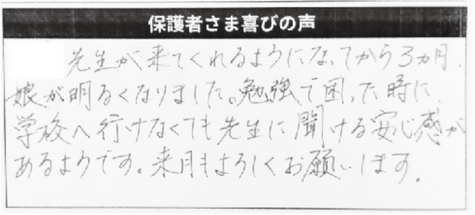 保護者さま喜びの声
先生が来てくれるようになってから3ヵ月、
娘が明るくなりました。勉強で困った時に
学校へ行けなくても先生に聞ける安心感が
あるようです。来月もよろしくお願いします。